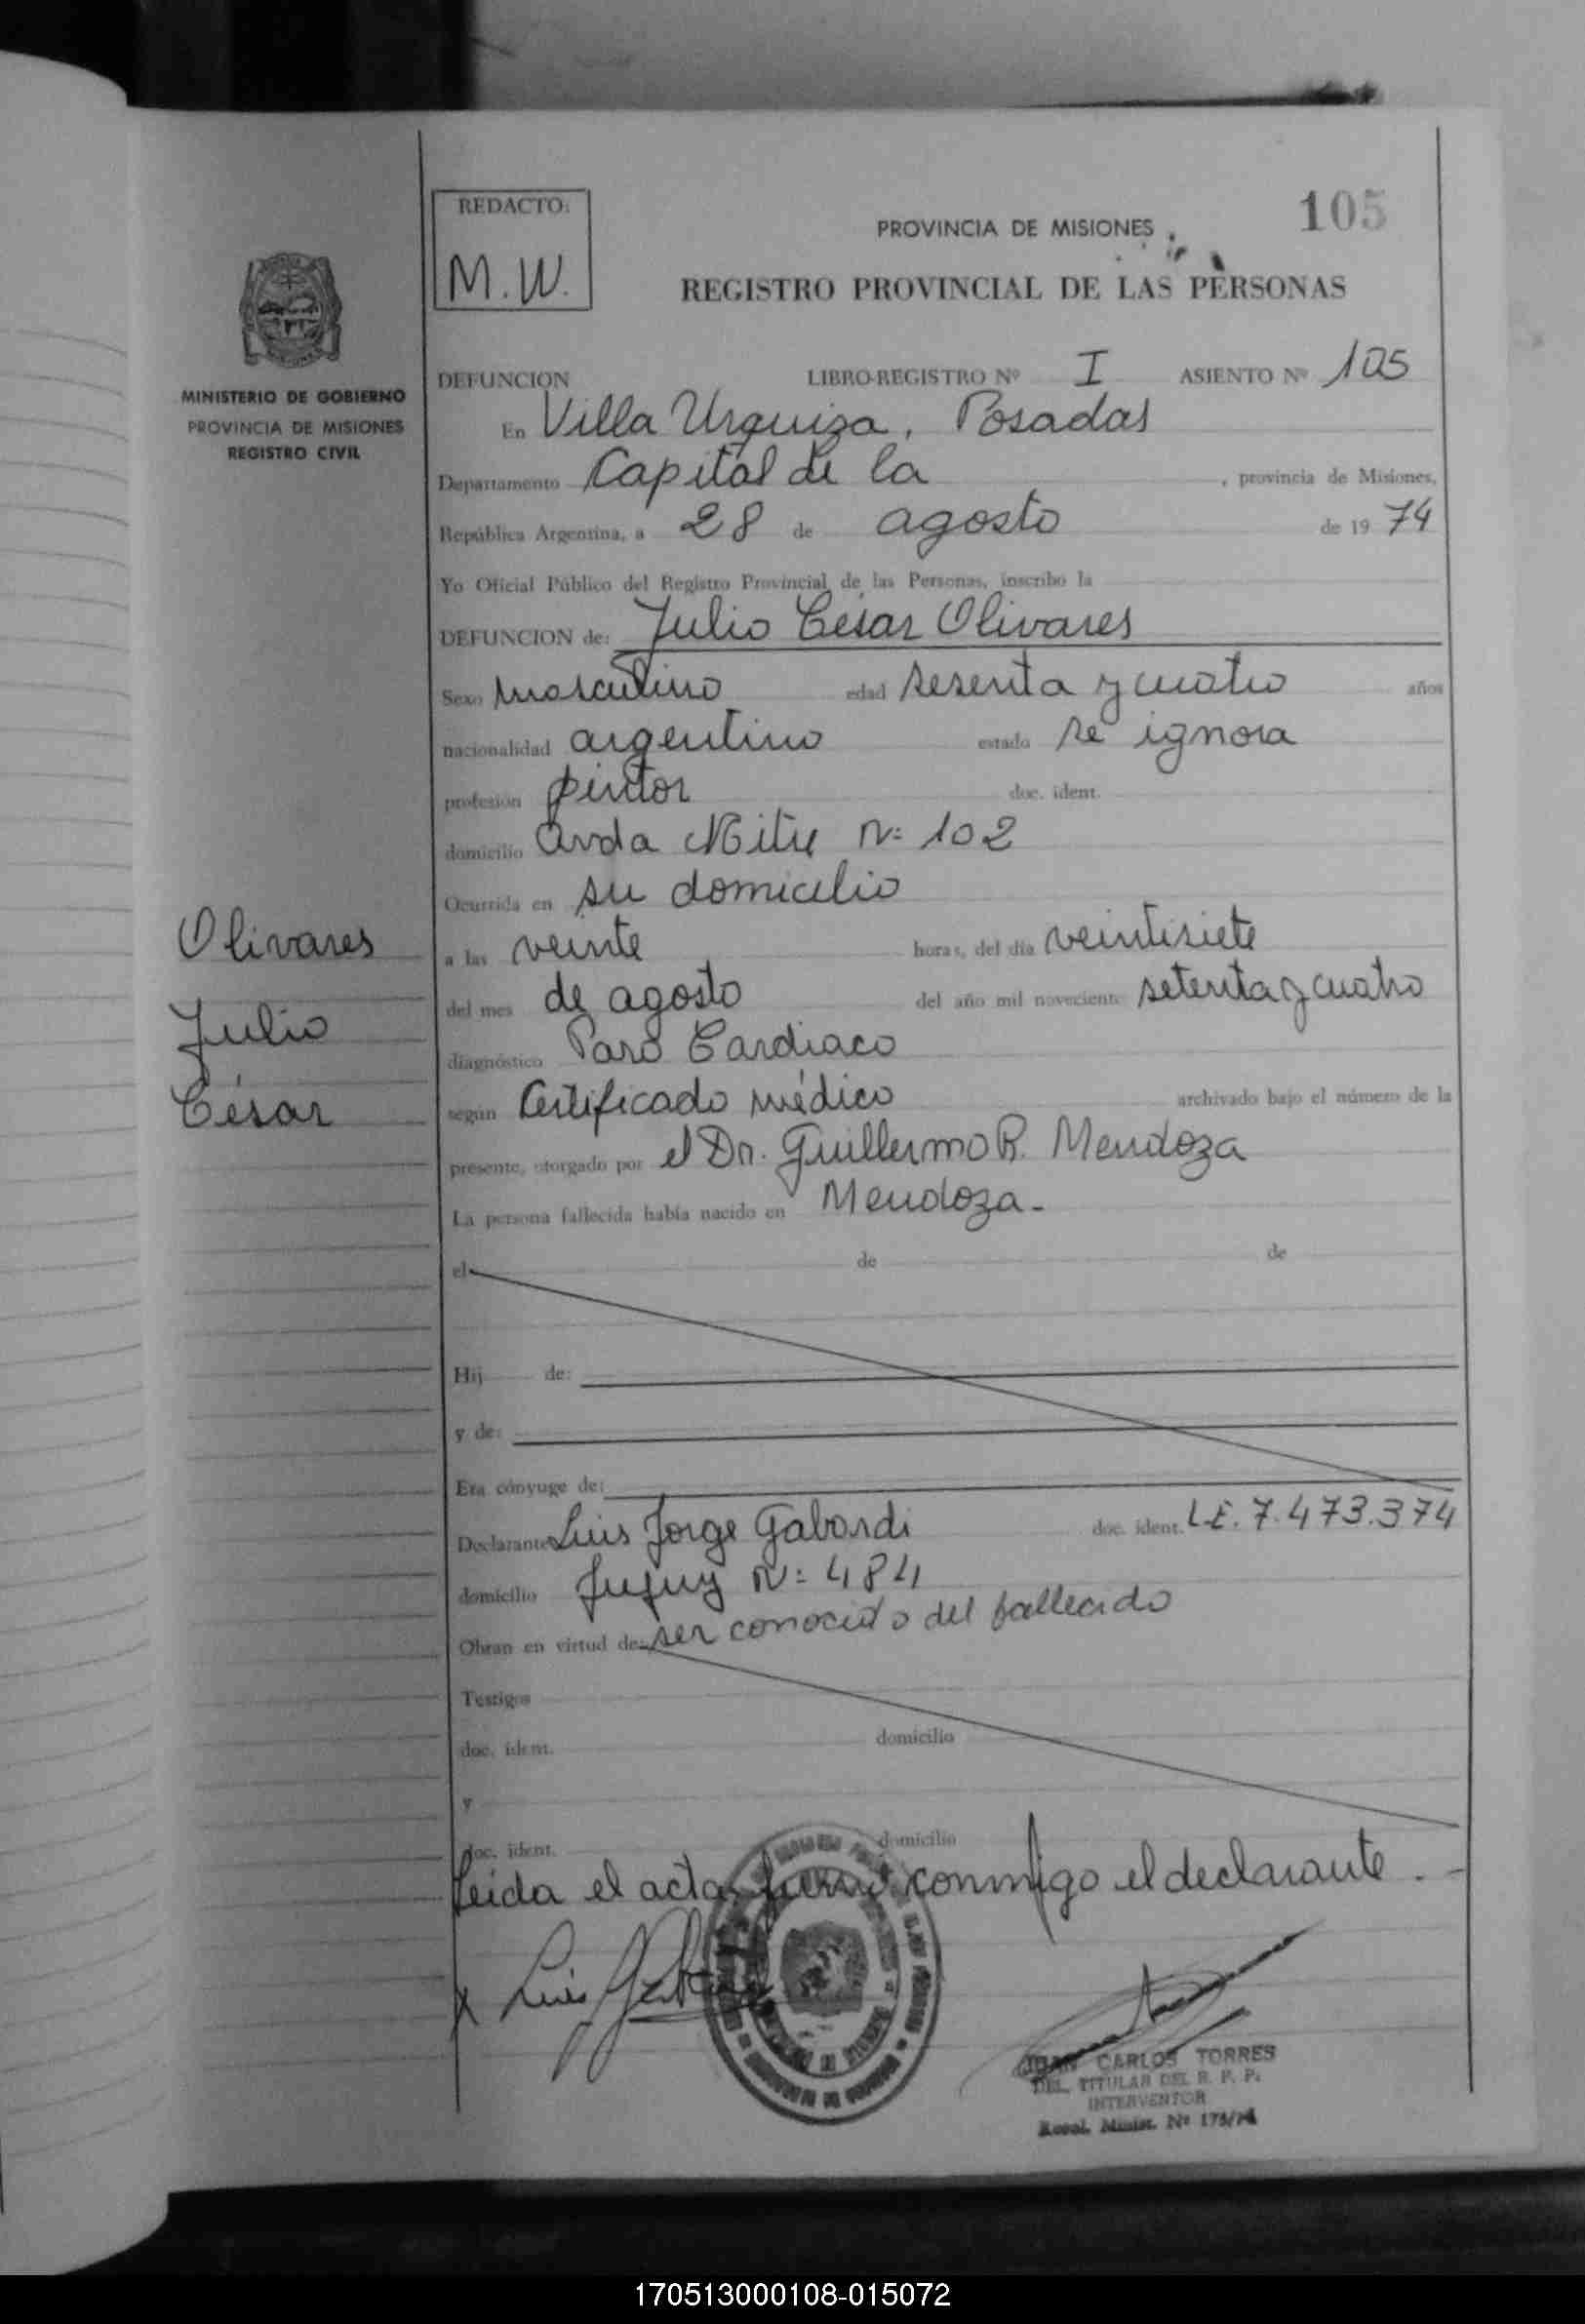 105
REDACTO:
M.W.
PROVINCIA DE MISIONES
REGISTRO PROVINCIAL DE LAS PERSONAS
MINISTERIO DE GOBIERNO
PROVINCIA DE MISIONES
REGISTRO CIVIL
DEFUNCION LIBRO-REGISTRO Nº I ASIENTO Nº 105
En Villa Urquiza, Posadas
Departamento Capital de la , provincia de Misiones,
República Argentina, a 28 de agosto de 1974
Yo Oficial Público del Registro Provincial de las Personas, inscribo la
DEFUNCION de: Julio César Olivares
Sexo masculino edad sesenta y cuatro años
nacionalidad argentino estado se ignora
profesión pintor doc. ident.
domicilio Avda Mitre Nº 102
Ocurrida en su domicilio
Olivares
Julio
César
a las veinte horas, del día veintisiete
del mes de agosto del año mil noveciento setenta y cuatro
diagnóstico Paro Cardiaco
según Certificado médico archivado bajo el número de la
presente, otorgado por el Dr. Guillermo R. Mendoza
La persona fallecida había nacido en Mendoza-
el de de
Hij de:
y de:
Era cónyuge de:
Declarante Luis Jorge Gabardi doc. ident. L.E. 7.473.374
domicilio Jujuy Nº 484
Obran en virtud de: ser conocido del fallecido
Testigos
doc. ident. domicilio
y
doc. ident. domicilio
Leida el acta, firma conmigo el declarante.-
x Luis
JUAN CARLOS TORRES
DEL. TITULAR DEL R. P. P.
INTERVENTOR
Resol. Minist. Nº 175/74
170513000108-015072